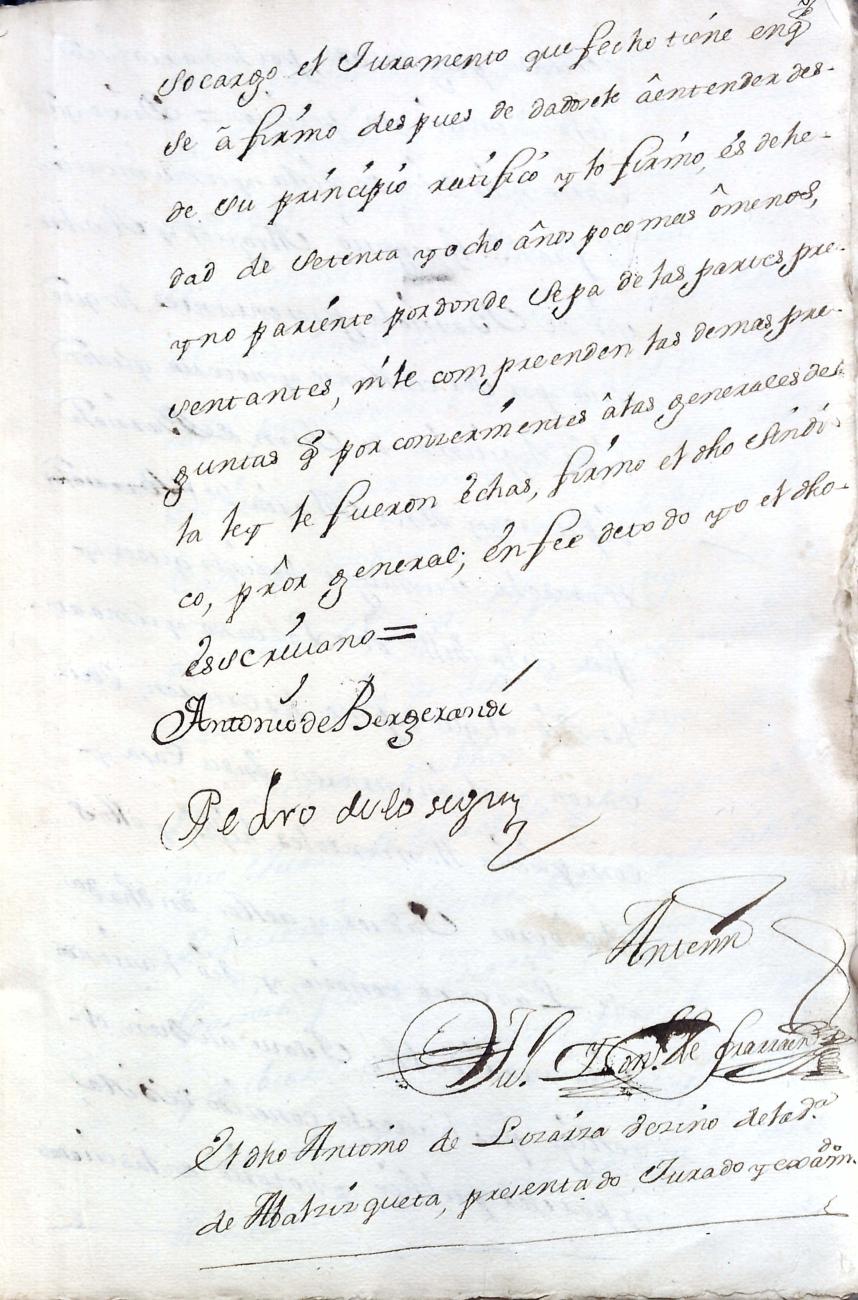 socargo el Juramento que fecho tiene enqͤ
se âfirmo despues de dadosele âentender des-
de su principio ratificó y lo firmo, és dehe-
dad de setenta y ocho años pocomas ômenos,
y no pariente pordonde sepa de las partes pre-
sentantes, nile compreenden las demas pre-
guntas q̃ por conzernientes âlas generales de
la ley le fueron êchas, firmo el dho sindi-
co, prôr general; en fee detodo yo el dho
ésscriuano=
Antonio de Bergerandi
Pedro de
Antemi
El dho Antonio de Loraiza vezino delad.ª
de Abalzizqueta, presentado Jurado y exâm.do